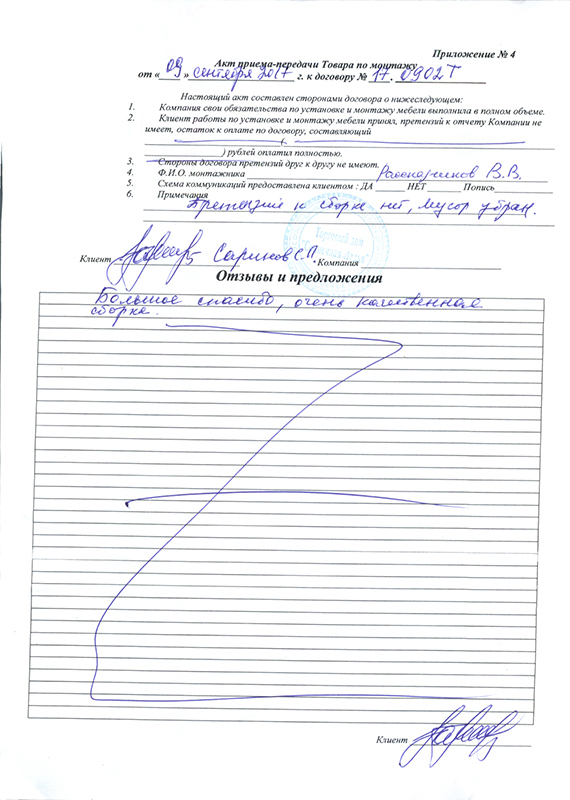 Приложение № 4
Акт приема-передачи Товара по монтажу
от « 09 » сентября 2017 г. к договору № 17.0902Т
Настоящий акт составлен сторонами договора о нижеследующем:
1. Компания свои обязательства по установке и монтажу мебели выполнила в полном объеме.
2. Клиент работы по установке и монтажу мебели принял, претензий к отчету Компании не
имеет, остаток к оплате по договору, составляющий
) рублей оплатил полностью.
3. Стороны договора претензий друг к другу не имеют.
4. Ф.И.О. монтажника В.В.
5. Схема коммуникаций предоставлена клиентом : ДА НЕТ Попись
6. Примечания
Претензий к сборке нет, мусор убран.
Клиент Сариков С.П. Компания
Отзывы и предложения
Большое спасибо, очень качественная
сборка.
Клиент